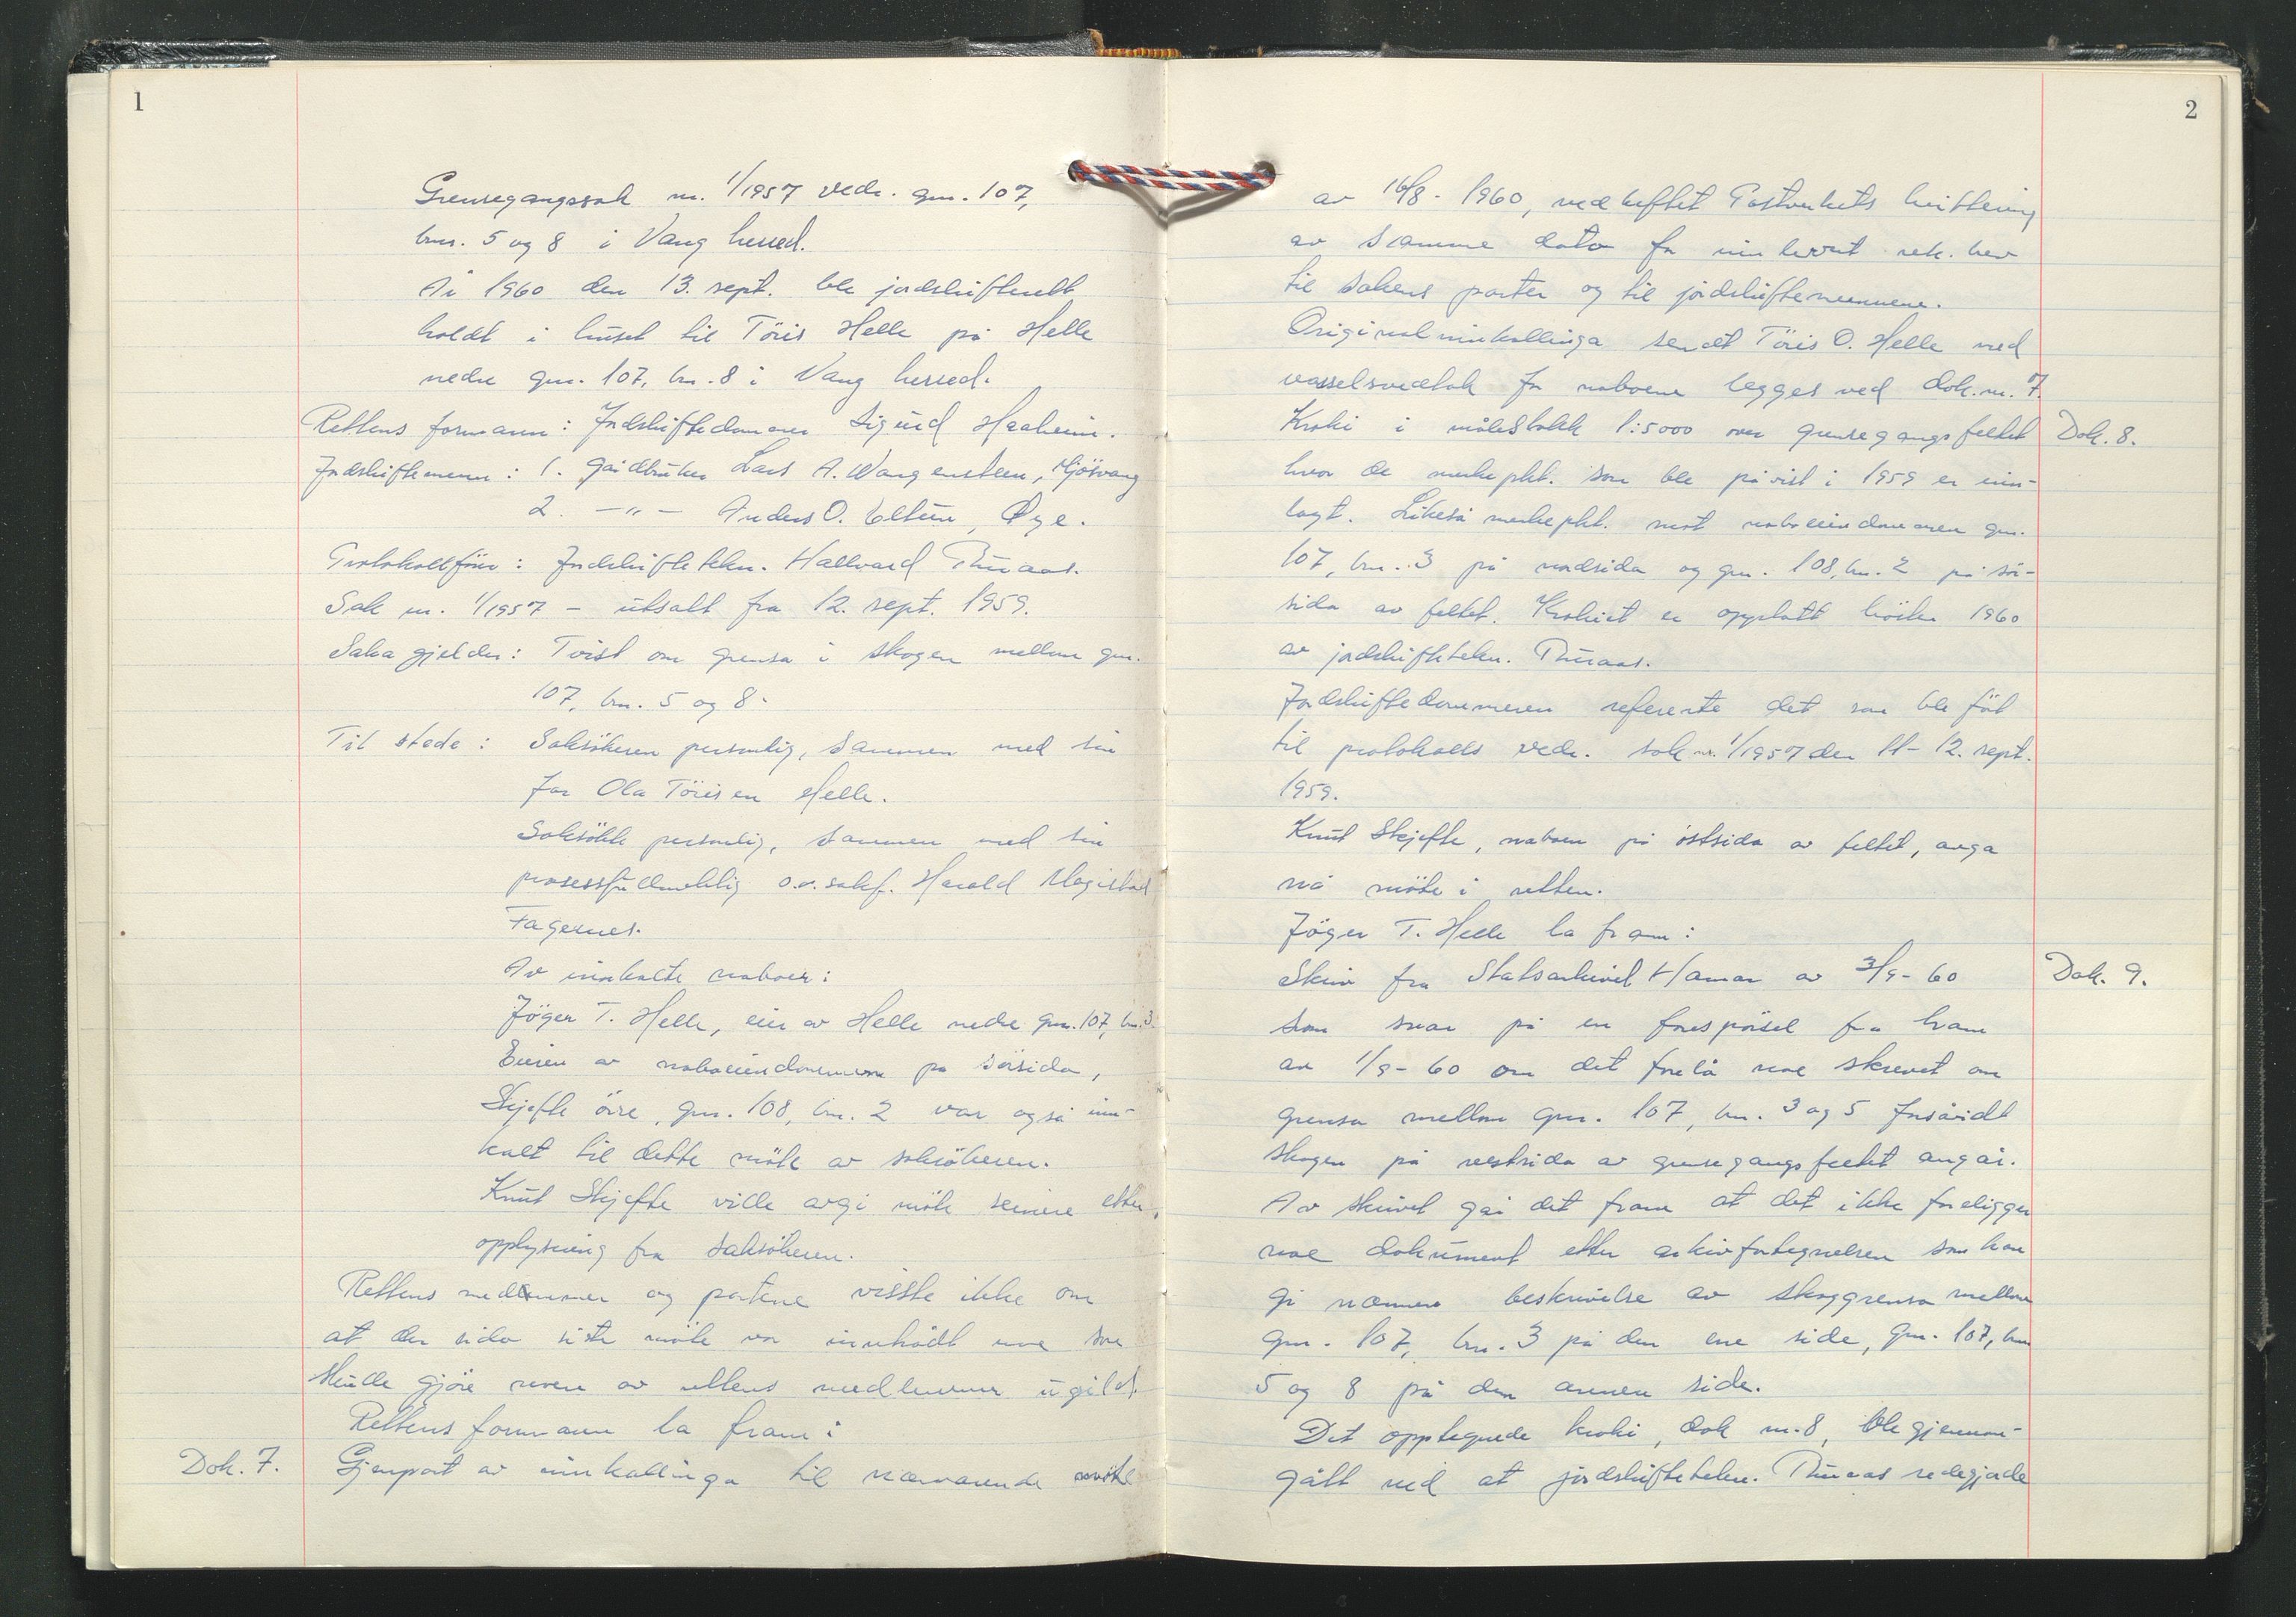 1
Grensegangssak nr. 1/1957 vedr. gnr. 107,
bnr. 5 og 8 i Vang herred.
År 1960 den 13. sept. ble jordskifterett
holdt i huset til Töris Helle på Helle
nedre gnr. 107, bnr. 8 i Vang herred.
Rettens formann: Jordskiftedommer Sigurd Haaheim.
Jordskiftemenn: 1. Gårdbruker Lars A. Wangensteen, Mjösvang
2. -"- Anders O. Eltun, Øye.
Protokollförer: Jordskiftetekn. Hallvard Thuaas.
Sak nr. 1/1957 - utsatt fra 12. sept. 1959.
Saka gjelder: Tvist om grensa i skogen mellom gnr.
107, bnr. 5 og 8.
Til stede: Saksökeren personlig, sammen med sin
far Ola Törisen Helle.
Saksökte personlig, sammen med sin
prosessfullmektig o.r.sakf. Harald Magistad
Fagernes.
Av innkalte naboer:
Jöger T. Helle, eier av Helle nedre gnr. 107, bnr. 3.
Eieren av naboeiendommen på sörsida,
Skjefte övre, gnr. 108, bnr. 2 var også inn-
kalt til dette möte av saksökeren.
Knut Skjefte ville avgi möte seinere etter
opplysning fra saksökeren.
Rettens medlemmer og partene visste ikke om
at der sida siste möte var inntrådt noe som
skulle gjöre noen av rettens medlemmer ugild.
Rettens formann la fram:
Dok. 7. Gjenpart av innkallinga til nærværende möte
2
av 16/8 - 1960, vedheftet Postverkets kvittering
av samme dato for innlevert rek. brev
til sakens parter og til jordskiftemennene.
Originalinnkallinga sendt Töris O. Helle med
varselsvedtak for naboene legges ved dok. nr. 7.
Kroki i målestokk 1:5000 over grensegangsfeltet Dok. 8.
hvor de merkepkt. som ble påvist i 1959 er inn-
lagt. Likeså merkepkt. mot naboeiendommen gnr.
107, bnr. 3 på nordsida og gnr. 108, bnr. 2 på sör-
sida av feltet. Krokiet er opptatt hösten 1960
av jordskiftetekn. Thuaas.
Jordskiftedommeren refererte det som ble fört
til protokolls vedr. sak nr. 1/1957 den 11-12. sept.
1959.
Knut Skjefte, naboen på östsida av feltet, avga
nå möte i retten.
Jöger T. Helle la fram:
Skriv fra Statsarkivet Hamar av 3/9-60 Dok. 9.
som svar på en forespörsel fra ham
av 1/9-60 om det forelå noe skrevet om
grensa mellom gnr. 107, bnr. 3 og 5 forsåvidt
skogen på vestsida av grensegangsfeltet angår.
Av skrivet går det fram at det ikke foreligger
noe dokument etter arkivfortegnelsen som kan
gi nærmere beskrivelse av skoggrensa mellom
gnr. 107, bnr. 3 på den ene side, gnr. 107, bnr
5 og 8 på den annen side.
Det opptegnede kroki, dok nr. 8, ble gjennom-
gått ved at jordskiftetekn. Thuaas redegjorde